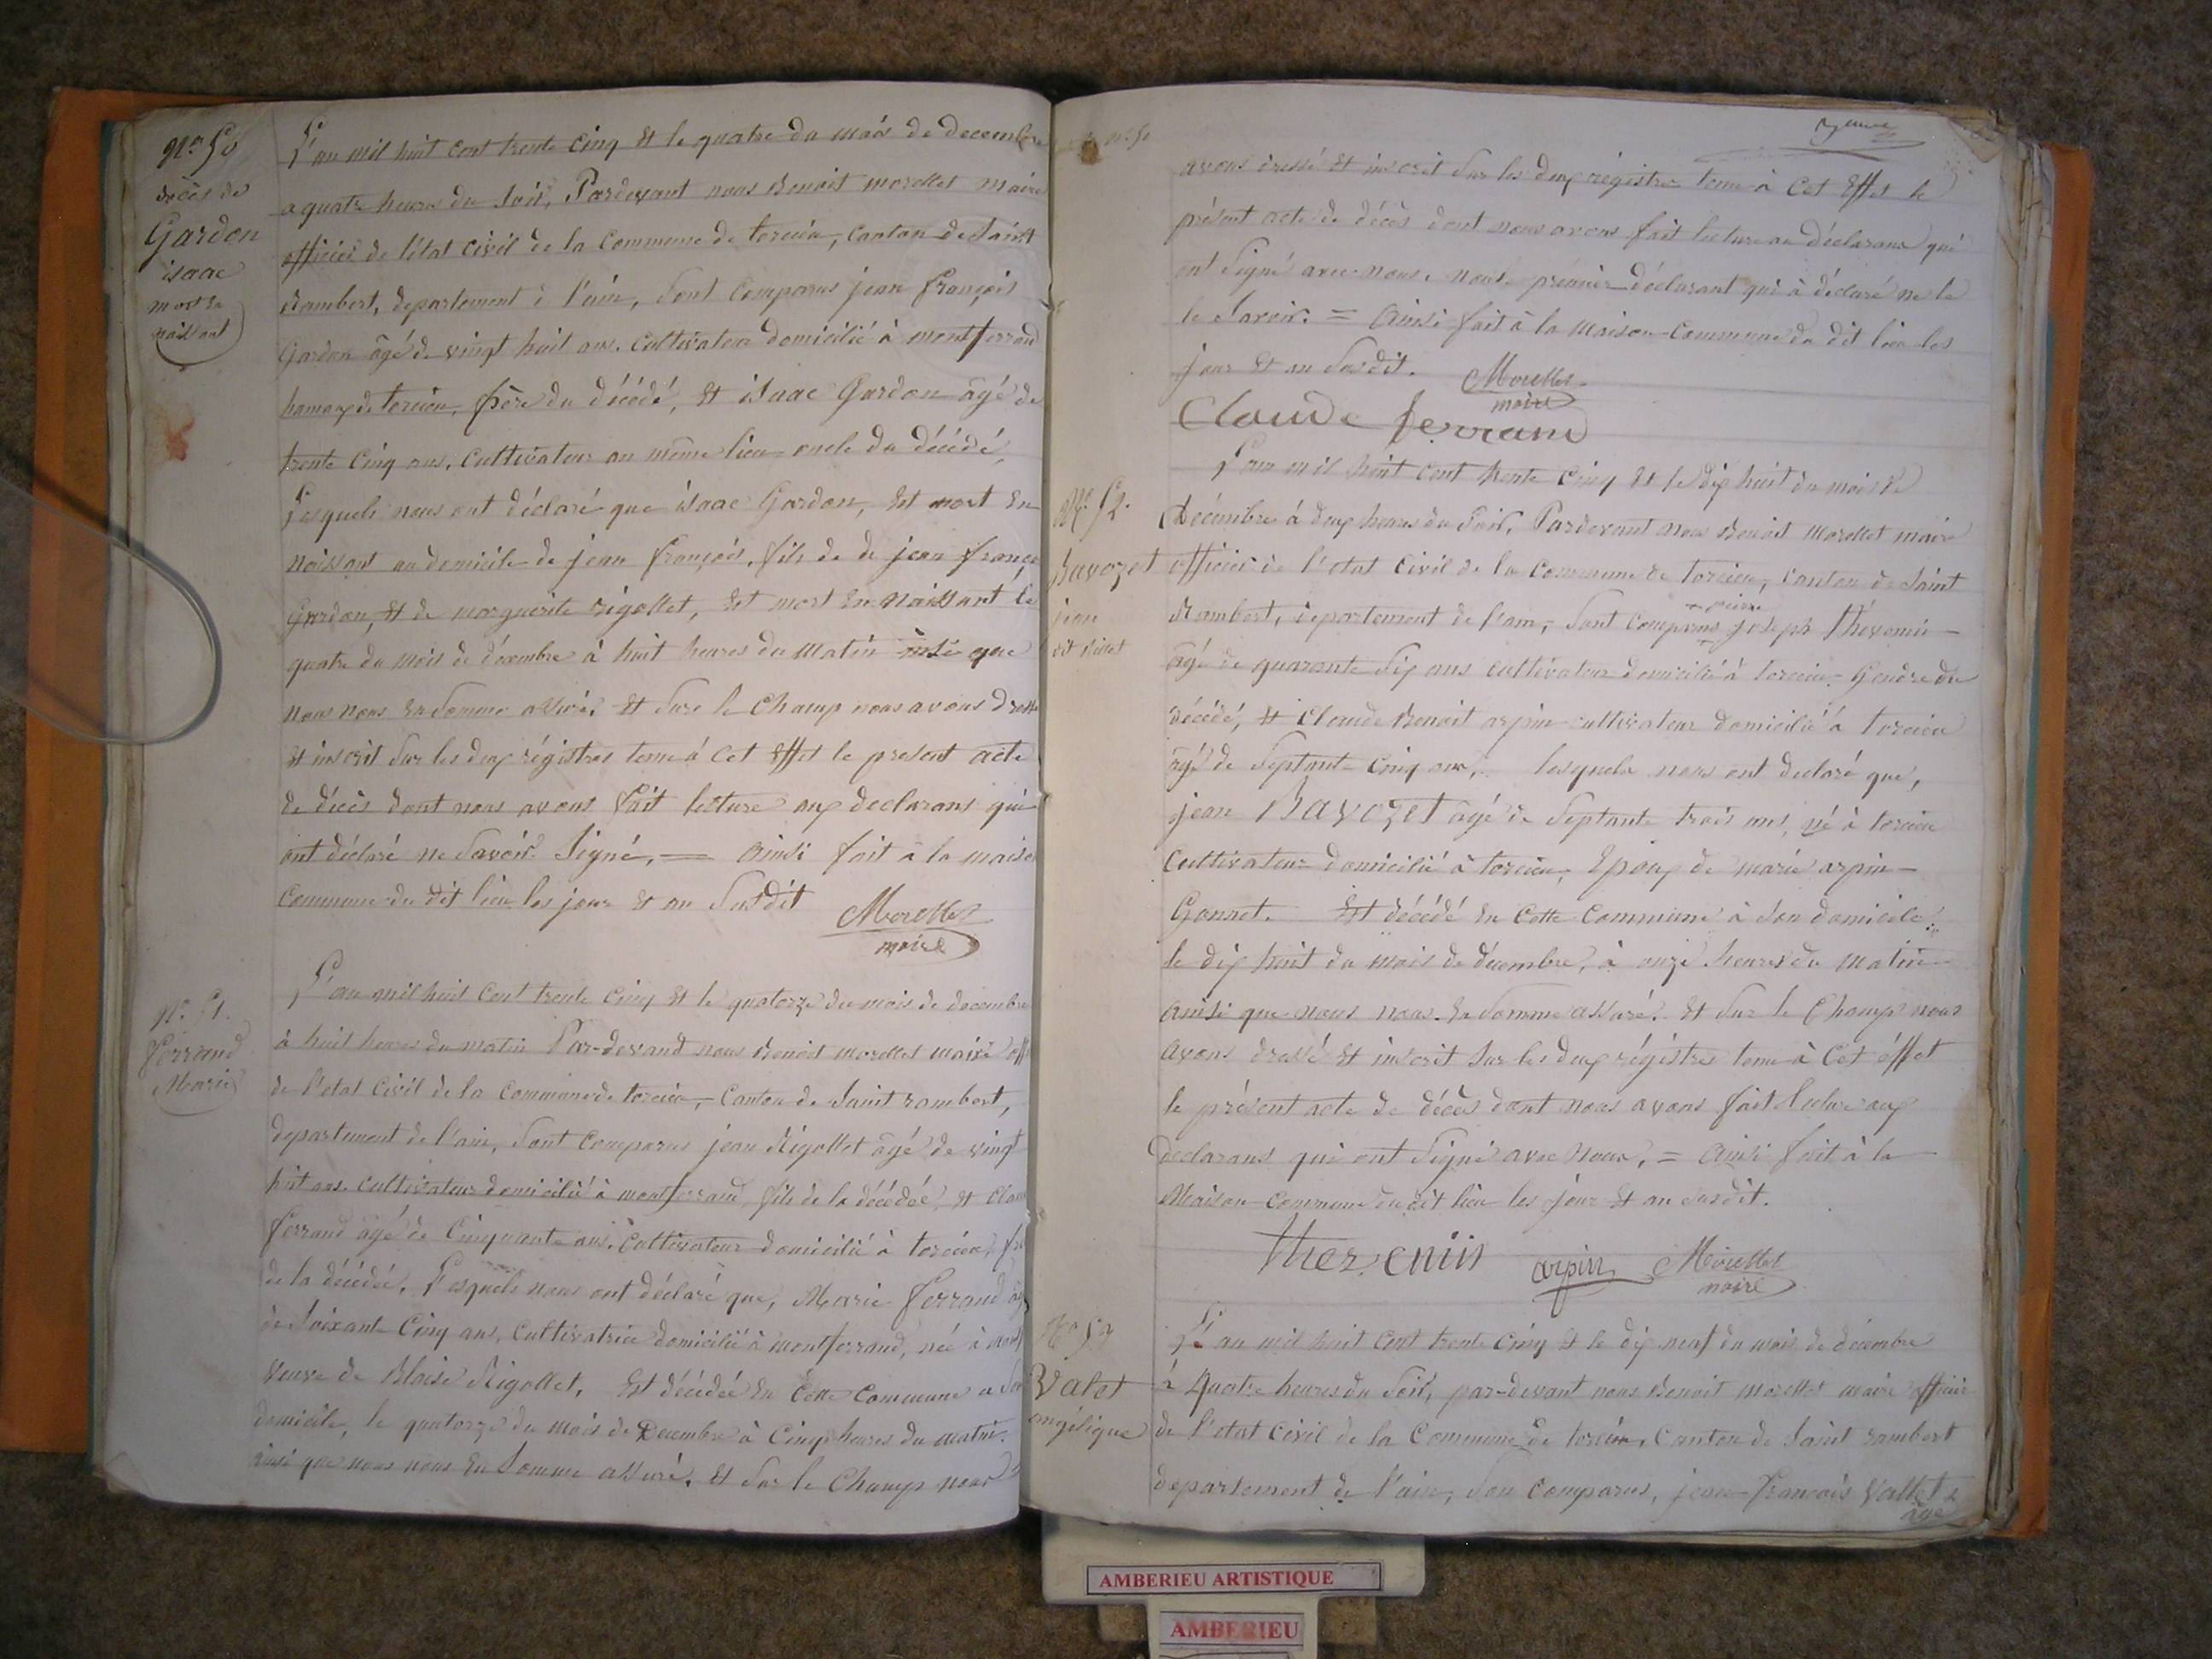 No 50
décès de
Gardon
isaac
mort en
naissant
L'an mil huit cent trente cinq Et le quatre du mois de decembre
a quatre heures du soir, Pardevant nous Benoit morellet maire
officier de l'état civil de la Commune de torcieu, canton de Saint
Rambert, departement de l'ain, sont comparus jean françois
Gardon âgé de vingt huit ans, cultivateur domicilié à montferrand
hameau de torcieu, père du décédé, Et isaac Gardon âgé de
trente cinq ans, cultivateur au même lieu oncle du décédé,
Lesquels nous ont déclaré que isaac Gardon, Est mort En
naissant au domicile de jean françois, fils de de jean franço
Gardon, Et de marguerite rigollet, Est mort En naissant le
quatre du mois de décembre à huit heures du matin insi que
nous nous En somme assuré. Et sure le champ nous avons dressé
Et inscrit sur les deux régistres tenu à cet Effet le present acte
de décès dont nous avons fait lecture aux declarans qui
ont déclaré ne savoir signé, = ainsi fait à la maison
commune du dit lieu les jour Et an susdit
Morellet
maire
No 51.
Ferrand
Marie
L'an mil huit cent trente cinq Et le quatorze du mois de decembre
à huit heures du matin Par-devand nous Benoit morellet maire off
de l'etat civil de la commune de torcieu, canton de Saint rambert,
departement de l'ain, sont comparus jean Rigollet âgé de vingt
huit ans cultivateur domicilié à montferrand, fils de la décédée, Et Clau
ferrand âgé de cinquante ans, cultivateur domicilié à torcieu, fre
de la décédée, Lesquels nous ont déclaré que, Marie ferrand âg
de soixante cinq ans, cultivatrice domicilié à montferrand, née à mont
veuve de Blaise Rigollet, Est décédée En cette commune a son
domicile, le quatorze du mois de Decembre à cinq heures du matin.
ainsi que nous nous En somme assuré. Et sur le champ nous
avons dressé Et inscrit sur les deux régistres tenu à cet Effet le
présent acte de décès dont nous avons fait lecture au déclarans qui
ont signé avec nous, premier déclarant qui à déclaré ne le
le savoir. = ainsi fait à la maison commune du dit lieu les
jour Et an susdit.
Morellet
maire
Claude ferrand
No 52.
Bavozet
jean
L'an mil huit cent trente cinq Et le dix huit du mois de
Décembre à deux heures du soir, Pardevant nous Benoit Morellet maire
officier de l'etat civil de la commune de torcieu, canton de Saint
Rambert, departement de l'ain, sont comparus joseph thévenin
pierre
âgé de quarante six ans cultivateur domicilié à torcieu Gendre du
décédé, Et claude Benoit arpin cultivateur domicilié à torcieu
âgé de septante cinq ans, lesquels nous ont declaré que,
jean Bavozet âgé de septante trois ans, né à torcieu
cultivateur domicilié à torcieu, Epoux de marie arpin
Gonnet. Est décédé En cette commune à son domicile,
le dix huit du mois de décembre, à onze heures du matin
ainsi que nous nous En somme assuré. Et sur le Champ nous
avons dressé Et inscrit sur les deux régistres tenu à cet éffet
le présent acte de décès dont nous avons fait lecture aux
declarans qui ont signé avec nous, = ainsi fait à la
Maison commune du dit lieu les jour Et an susdit.
thevenin arpin Morellet
maire
No 53
Valet
angélique
L'an mil huit cent trente cinq Et le dix neuf du mois de décembre
à quatre heures du soir, par-devant nous Benoit morellet maire officier
de l'etat civil de la Commune de torcieu, canton de Saint rambert
departement de l'ain, son comparus, jean-francois Vallet
âgé
AMBERIEU ARTISTIQUE
AMBERIEU